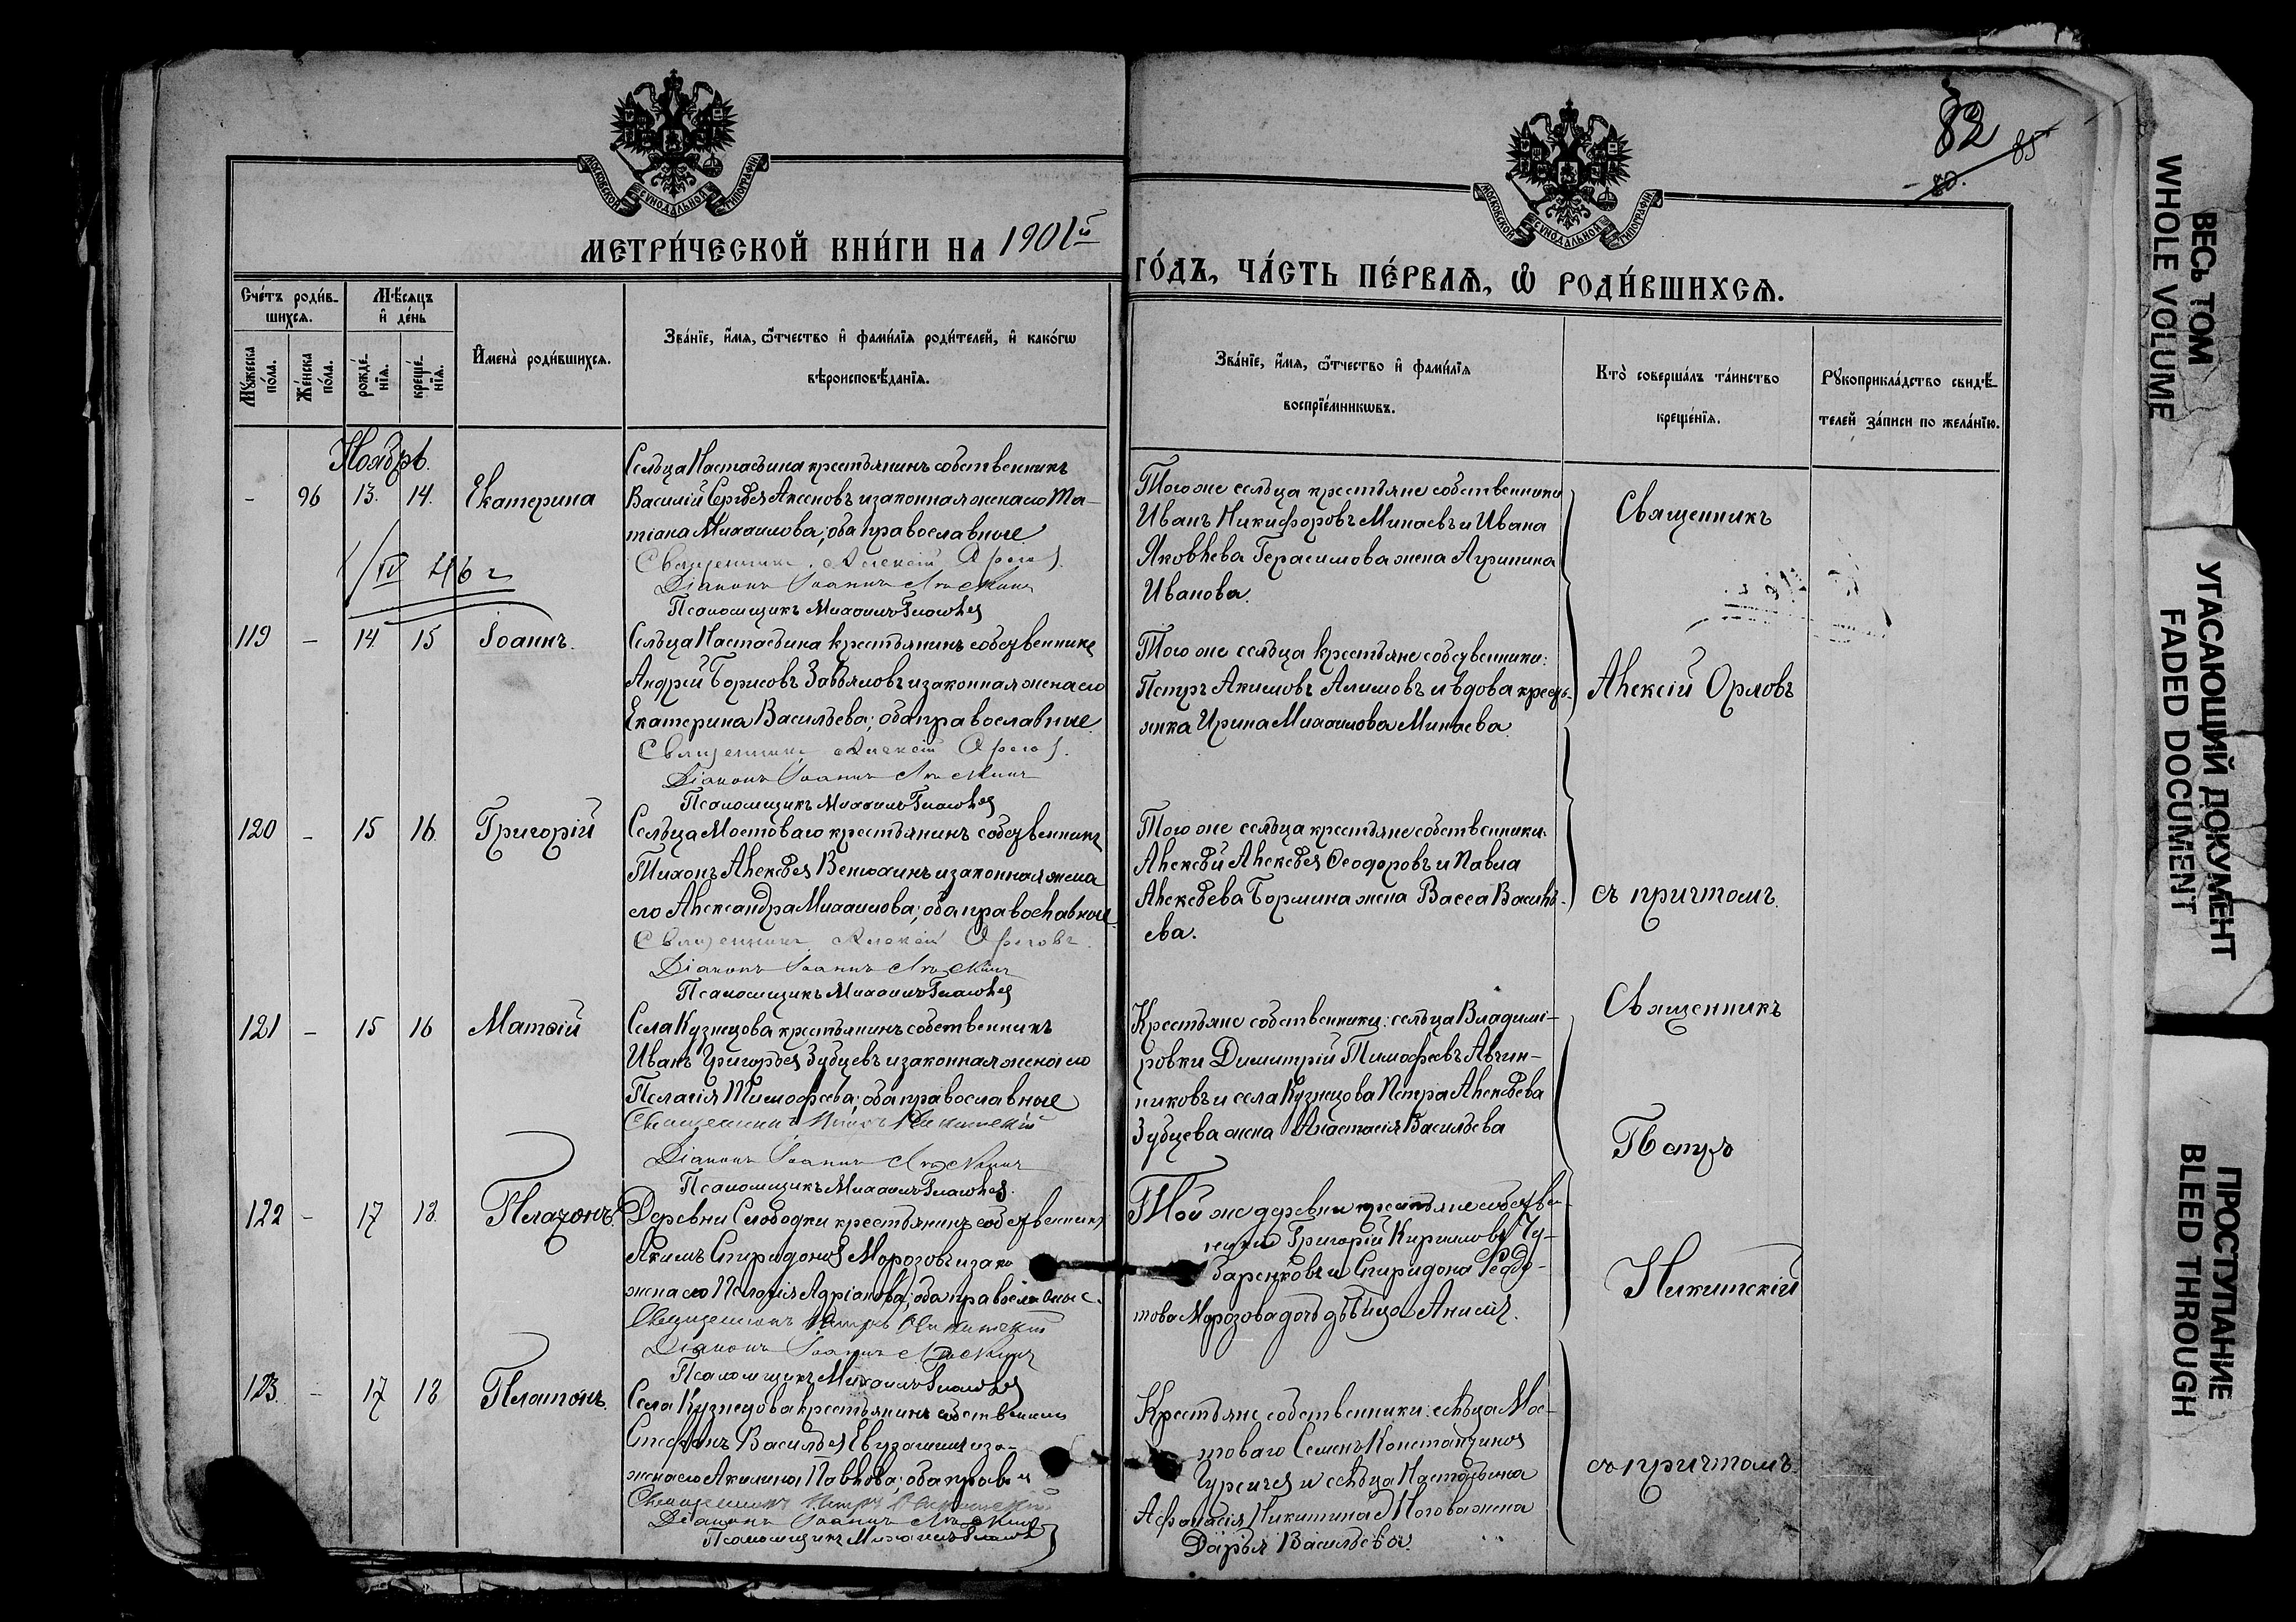 82
85
80.
МОСКОВСКОЙ СѴНОДАЛЬНОЙ ТИПОГРАФІИ
МОСКОВСКОЙ СѴНОДАЛЬНОЙ ТИПОГРАФІИ
МЕТРИ́ЧЕСКОЙ КНИ́ГИ НА 1901й
ГО́ДЪ, ЧА́СТЬ ПЕ́РВАѦ, Ѡ҆ РОДИ́ВШИХСѦ.
Сче́тъ роди́в-
шихсѧ.
Мѣ́сѧцъ
и҆ де́нь
Мꙋ́жеска
по́ла.
Же́нска
по́ла.
рожде́-
нїѧ.
креще́-
нїѧ.
И҆мена̀ роди́вшихсѧ.
Зва́нїе, и҆́мѧ, ѻ҆́тчество и҆ фами́лїѧ роди́телей, и҆ како́гѡ
вѣроисповѣ́данїѧ.
Зва́нїе, и҆́мѧ, ѻ҆́тчество и҆ фами́лїѧ
воспрїе́мникѡвъ.
Кто̀ соверша́лъ та́инство
креще́нїѧ.
Рꙋкоприкла́дство свидѣ́-
телей за́писи по жела́нїю.
Ноябрь.
- 96 13. 14. Екатерина
Сельца Настасьина крестьянинъ собственникъ
Василій Сергѣевъ Аксеновъ и законная жена его Та-
тіана Михаилова; оба православные
Священникъ Алексій Орловъ.
Діаконъ Іоаннъ
Псаломщикъ Михаилъ
Того же сельца крестьяне собственники
Иванъ Никифоровъ Минаевъ и Ивана
Яковлева Герасимова жена Агрипина
Иванова.
Священникъ
IV 46 г
119 - 14. 15 Іоаннъ.
Сельца Настасьина крестьянинъ собственникъ
Андрей Борисовъ Завьяловъ и законная жена его
Екатерина Васильева; оба православные
Священникъ Алексій Орловъ.
Діаконъ Іоаннъ
Псаломщикъ Михаилъ
Того же сельца крестьяне собственники:
Петръ Акимовъ Алимовъ и вдова кресть-
янка Ирина Михаилова Минаева.
Алексій Орловъ
120 - 15 16. Григорій
Сельца Мостоваго крестьянинъ собственникъ
Тихонъ Алексѣевъ Венюхинъ и законная жена
его Александра Михаилова; оба православные
Священникъ Алексій Орловъ.
Діаконъ Іоаннъ
Псаломщикъ Михаилъ
Того же сельца крестьяне собственники:
Алексѣй Алексѣевъ Ѳеодоровъ и Павла
Алексѣева Бормина жена Васса Василь-
ева.
съ причтомъ.
121 - 15 16 Матѳій
Села Кузнецова крестьянинъ собственникъ
Иванъ Григорьевъ Зубцевъ и законная жена его
Пелагія Тимофеева; оба православные
Священникъ Петръ Никитскій
Діаконъ Іоаннъ
Псаломщикъ Михаилъ
Крестьяне собственники: сельца Владимі-
ровки Димитрій Тимофеевъ Авчин-
никовъ и села Кузнецова Петра Алексѣева
Зубцева жена Анастасія Васильева
Священникъ
Петръ
122 - 17 18. Платонъ.
Деревни Слободки крестьянинъ собственникъ
Акимъ Спиридоновъ Морозовъ и зако
жена его Пелагія Адріанова; оба православные.
Священникъ Петръ Никитскій
Діаконъ Іоаннъ
Псаломщикъ Михаилъ
Той же деревни крестьяне собствен-
ники Григорій Кирилловъ Чу-
баренковъ и Спиридона Ѳедо-
това Морозова дочь дѣвица Анисія.
Никитскій
123. - 17 18 Платонъ.
Села Кузнецова крестьянинъ собственникъ
Стефанъ Васильевъ и за-
жена его Акилина Павлова; оба правос
Священникъ Петръ Никитскій
Діаконъ Іоаннъ
Псаломщикъ Михаилъ
Крестьяне собственники: сельца Мос-
товаго Семенъ Константиновъ
и сельца Настасьина
Афанасія Никитина жена
Дарья Васильева.
съ причтомъ.
ВЕСЬ ТОМ
WHOLE VOLUME
УГАСАЮЩИЙ ДОКУМЕНТ
FADED DOCUMENT
ПРОСТУПАНИЕ
BLEED THROUGH